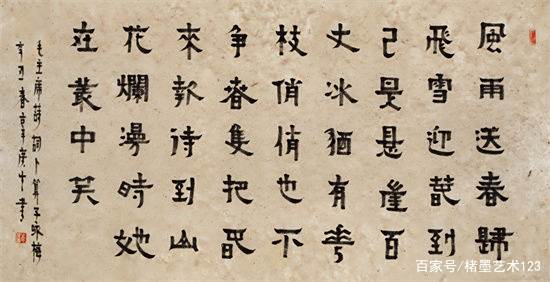 風雨送春歸
飛雪迎萅到
已是悬崖百
丈冰猶有花
枝俏俏也不
争春隻把萅
來報待到山
花爛漫時她
在叢中笑
毛主席詩詞卜算子咏梅
辛丑春書
百家号/楮墨艺术123